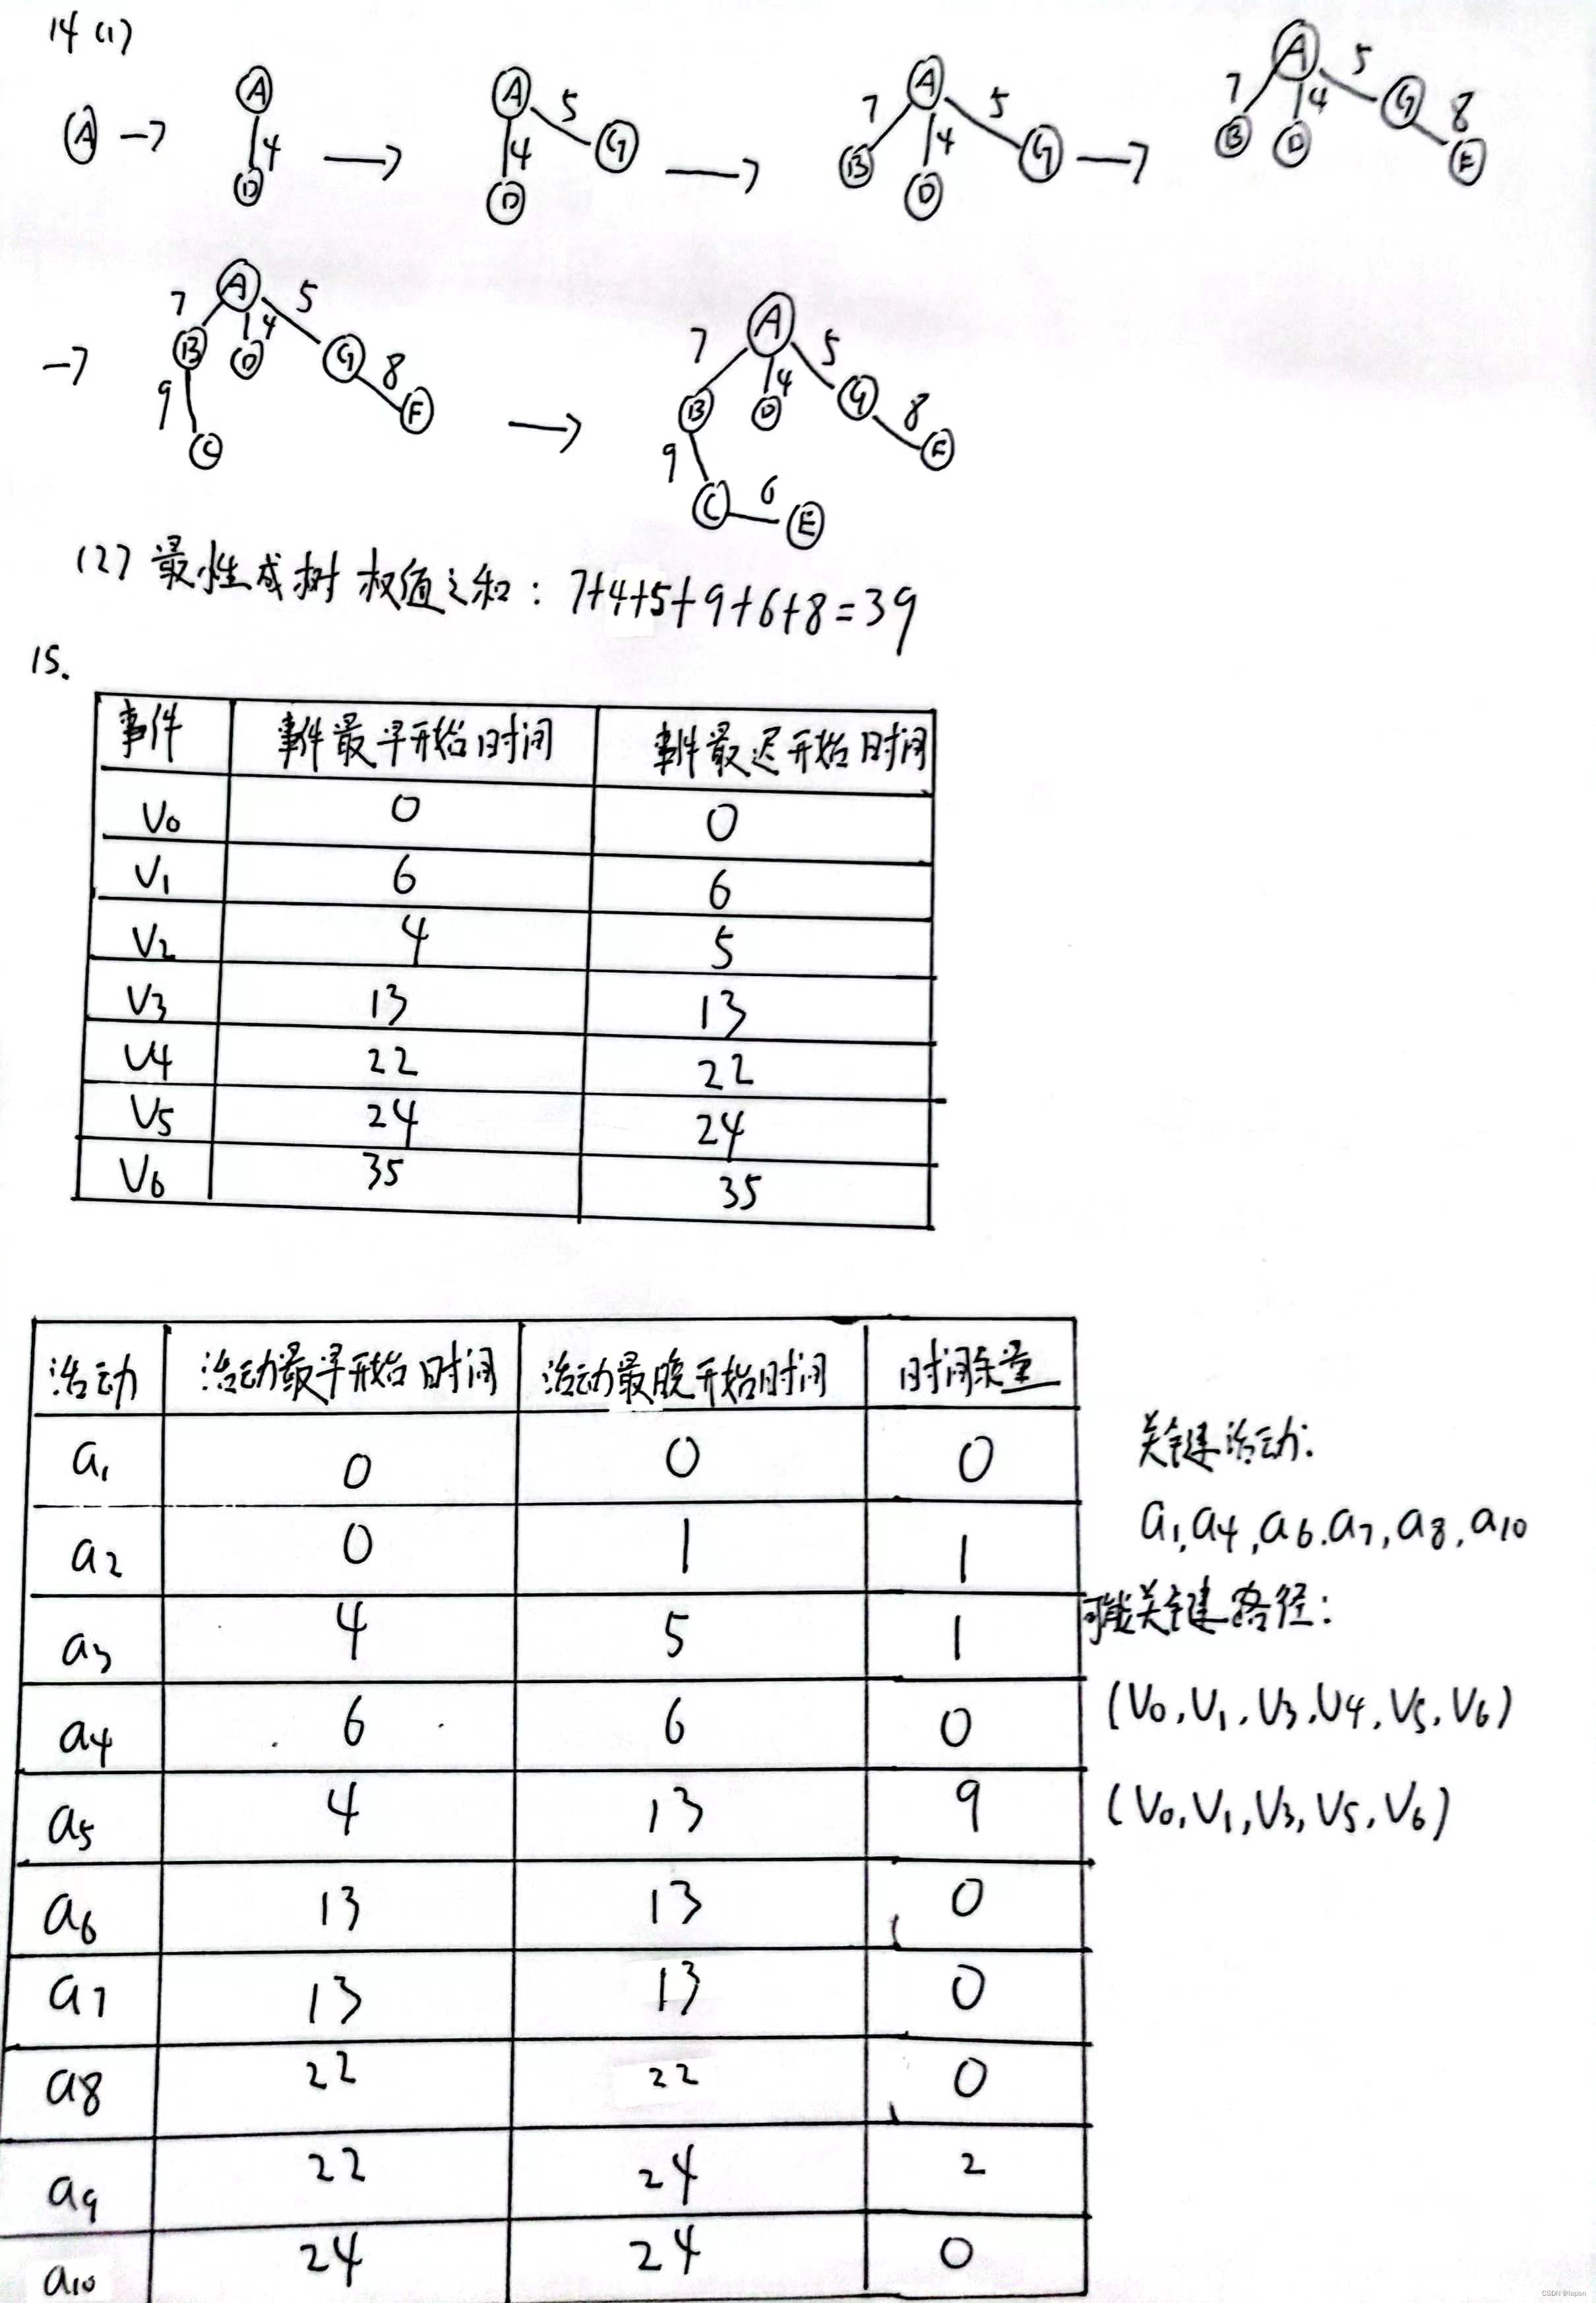 14 (1)
A → A 4 D → A 4 D 5 G → A 7 B 4 D 5 G → A 7 B 4 D 5 G 8 F
→ A 7 B 4 D 5 G 8 F 9 C → A 7 B 4 D 5 G 8 F 9 C 6 E
(2) 最小生成树权值之和: 7+4+5+9+6+8=39
15.
事件 事件最早开始时间 事件最迟开始时间
V0 0 0
V1 6 6
V2 4 5
V3 13 13
V4 22 22
V5 24 24
V6 35 35
活动 活动最早开始时间 活动最晚开始时间 时间余量
a1 0 0 0
a2 0 1 1
a3 4 5 1
a4 6 6 0
a5 4 13 9
a6 13 13 0
a7 13 13 0
a8 22 22 0
a9 22 24 2
a10 24 24 0
关键活动:
a1,a4,a6.a7,a8,a10
可能关键路径:
(V0,V1,V3,V4,V5,V6)
(V0,V1,V3,V5,V6)